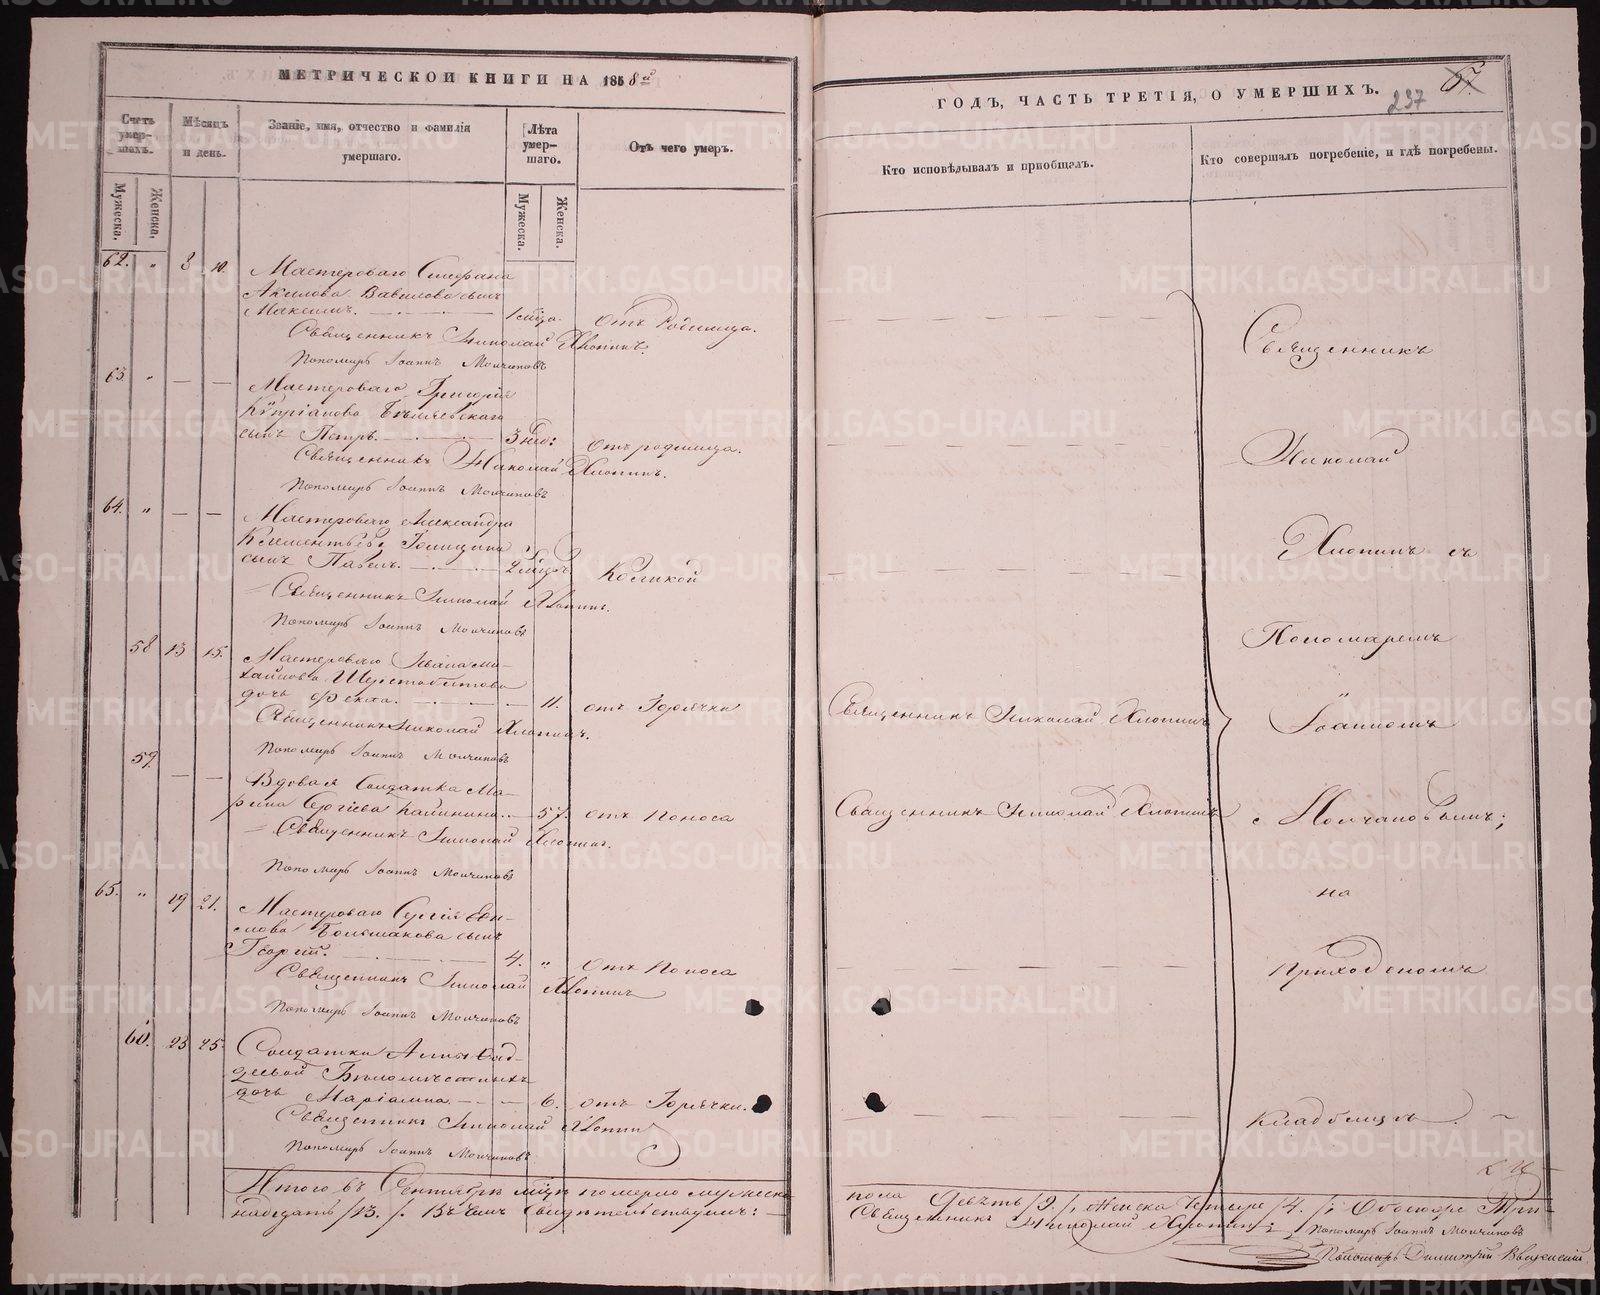 МЕТРИЧЕСКОЙ КНИГИ НА 1858й
Счетъ умер-шихъ.
Мужеска.
Женска.
Мѣсяцъ и день.
Званіе, имя, отчество и фамилія умершаго.
Лѣта умер-шаго.
Мужеска.
Женска.
Отъ чего умеръ.
62. " 8 10. Мастероваго
Вавилова сынъ
Максимъ. 1 мѣца. Отъ Родимца.
Священникъ Николай Хлопинъ.
Пономарь Іоаннъ Молчановъ
63. " — — Мастероваго Григорія
Купріанова
сынъ Петръ. 3 отъ родимца.
Священникъ Николай Хлопинъ.
Пономарь Іоаннъ Молчановъ
64. " — — Мастероваго Александра
Клементьева
сынъ Павелъ. 2
Священникъ Николай Хлопинъ.
Пономарь Іоаннъ Молчановъ
58 13 15. Мастероваго Ивана Ми-
хайлова Шерстобитова
дочь Фекла. 11. отъ Горячки
Священникъ Николай Хлопинъ.
Пономарь Іоаннъ Молчановъ
59. — — Вдовая Солдатка Ма-
рина Сергіева Калинина. 57. отъ Поноса
Священникъ Николай Хлопинъ.
Пономарь Іоаннъ Молчановъ
65. " 19 21. Мастероваго Сергія
Большакова сынъ
Георгій. 4. " Отъ Поноса
Священникъ Николай Хлопинъ
Пономарь Іоаннъ Молчановъ
60. 23 25. Солдатки Анны
дочь Маріамна. 6. отъ Горячки.
Священникъ Николай Хлопинъ
Пономарь Іоаннъ Молчановъ
Итого въ Сентябрѣ мѣцѣ померло мужеска
надцать /13./ Въ чемъ свидѣтельствуемъ:
ГОДЪ, ЧАСТЬ ТРЕТІЯ, О УМЕРШИХЪ.
237
67.
Кто исповѣдывалъ и пріобщалъ.
Кто совершалъ погребеніе, и гдѣ погребены.
Священникъ Николай Хлопинъ
Священникъ Николай Хлопинъ
Священникъ
Николай
Хлопинъ съ
Пономаремъ
Іоанномъ
Молчановымъ;
на
приходскомъ
кладбищѣ.
пола девять /9./, женска четыре /4./; Обоего Три-
Священникъ Николай Хлопинъ
Пономарь Іоаннъ Молчановъ
Пономарь Димитрій
METRIKI.GASO-URAL.RU